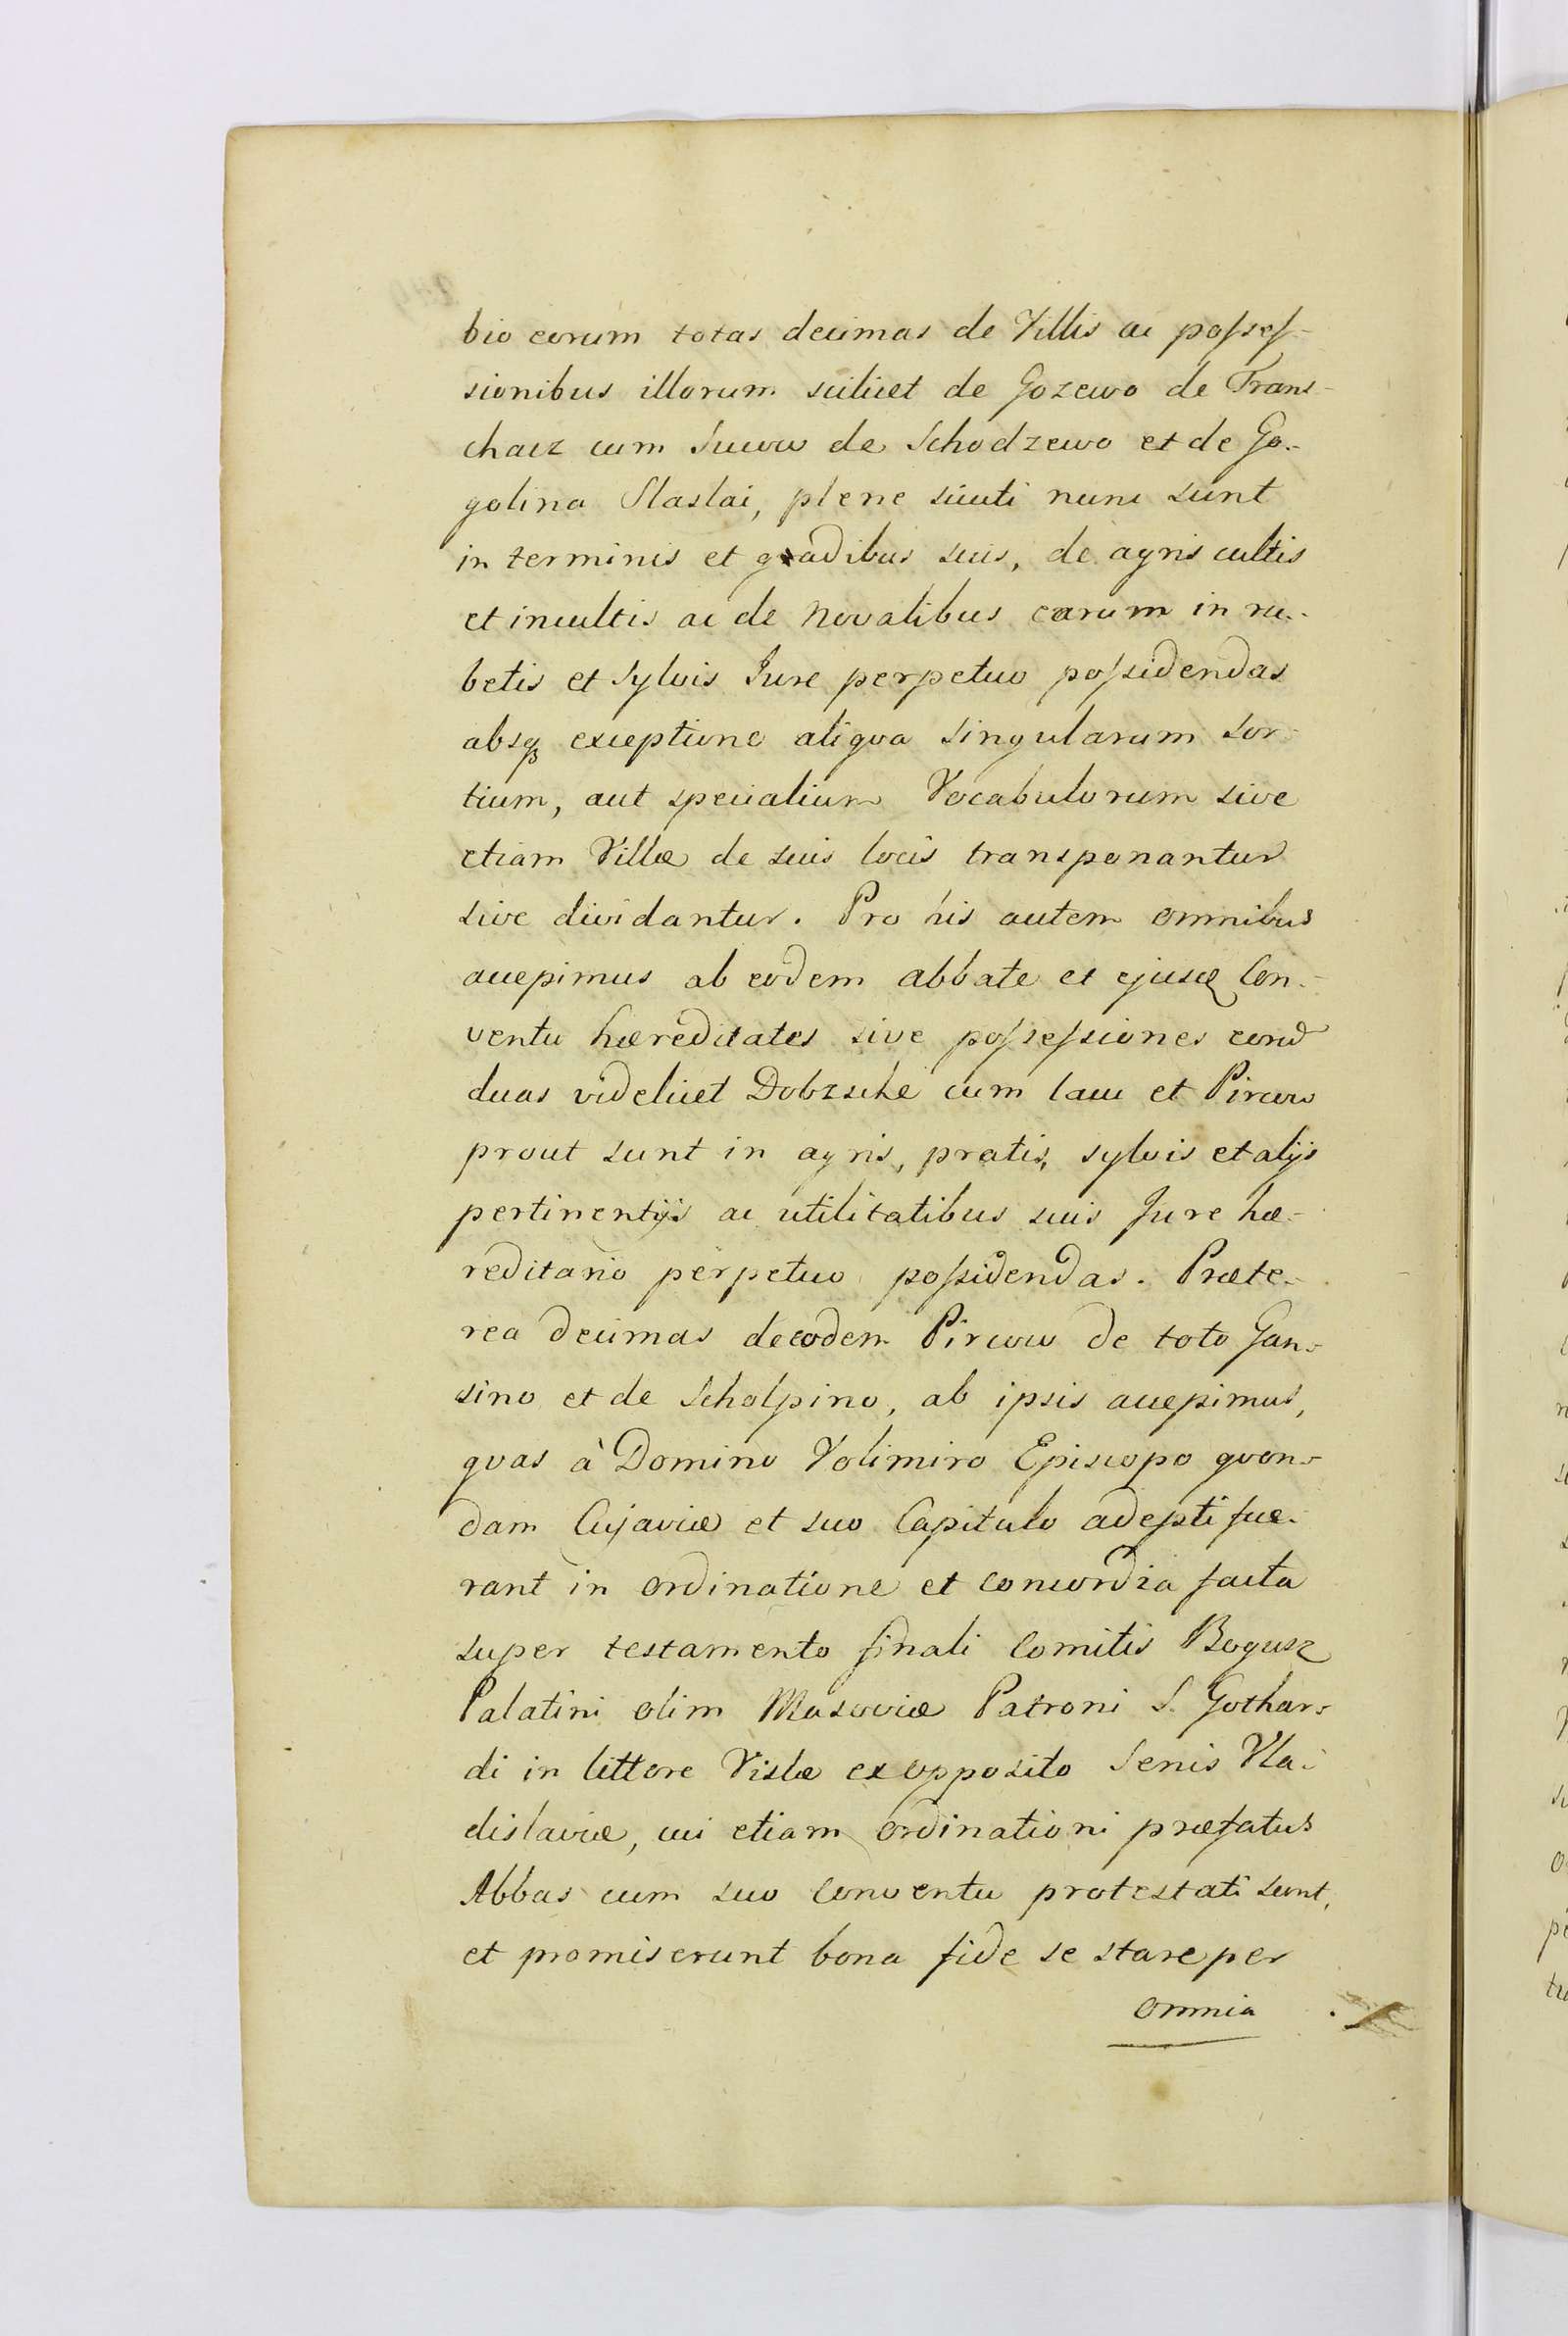 bio eorum totas decimas de Villis ac posses-
sionibus illorum scilicet de Gozewo de Trans-
chacz cum lacu de Schodzewo et de Go-
golina Slaslai, plene sicuti nunc sunt
in terminis et gradibus suis, de agris cultis
et incultis ac de novalibus earum in ru-
betis et Sylvis Jure perpetuo possidendas
absq exceptione aliqva singularum sor-
tium, aut specialium Vocabulorum sive
etiam Villæ de suis locis transponantur
sive dividantur. Pro his autem omnibus
accepimus ab eodem abbate et ejusq Con-
ventu hæreditates sive possessiones eorud
duas videlicet Dobzsche cum lacu et Pircow
prout sunt in agris, pratis, sylvis et alijs
pertinentijs ac utilitatibus suis Jure hæ-
reditario perpetuo possidendas. Præte-
rea decimas de eodem Pircow de toto Gan-
sino et de Scholpino, ab ipsis accepimus,
qvas à Domino Volimiro Episcopo qvon-
dam Cujaviæ et suo Capitulo adepti fue-
rant in ordinatione et concordia facta
super testamento finali Comitis Bogusz
Palatini olim Masoviæ Patroni S. Gothar-
di in littore Vislæ ex opposito Senis Vla-
dislaviæ, cui etiam ordinationi præfatus
Abbas cum suo conventu protestati sunt,
et promiserunt bona fide se stare per
omnia